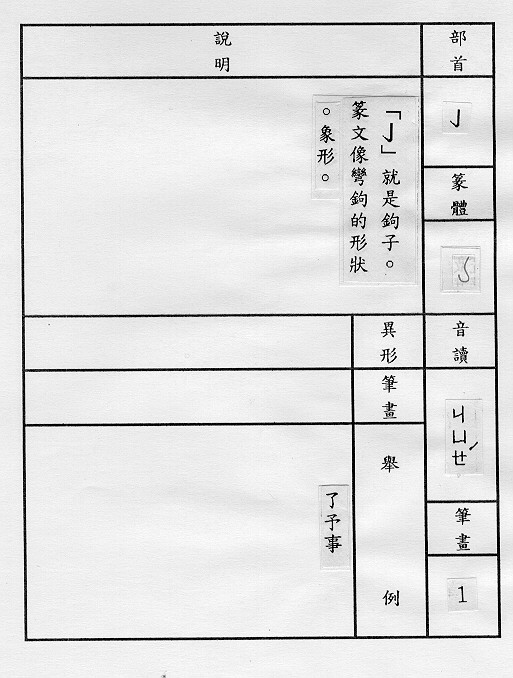 部首
亅
篆體
音讀
ㄐㄩㄝˊ
筆畫
1
說明
「亅」就是鉤子。
篆文像彎鉤的形狀
。象形。
異形
筆畫
舉例
了予事